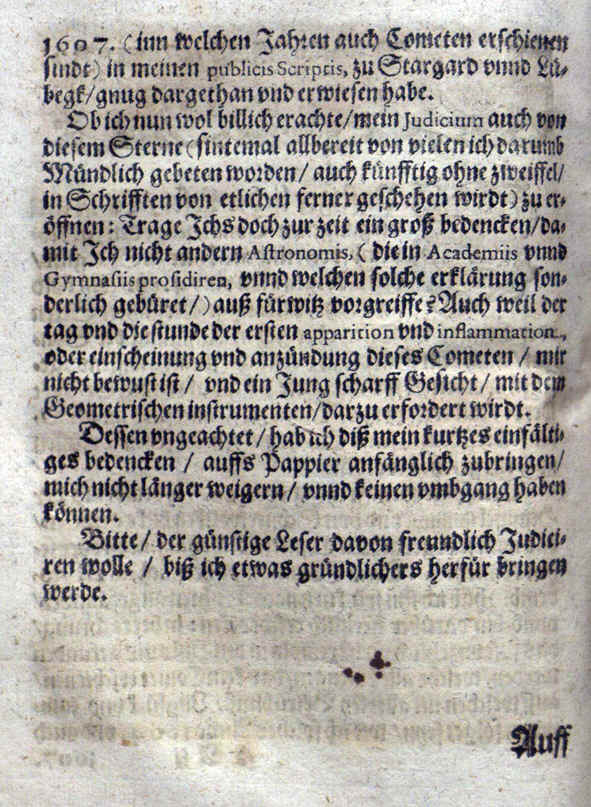 1607. (inn welchen Jahren auch Cometen erschienen
sindt) in meinen publicis Scriptis, zu Stargard vnnd Lü-
begk/gnug dargethan vnd erwiesen habe.
Ob ich nun wol billich erachte/mein Judicium auch von
diesem Sterne (sintemal allbereit von vielen ich darumb
Mündlich gebeten worden/ auch künfftig ohne zweiffel/
in Schrifften von etlichen ferner geschehen wirdt) zu er-
öffnen: Trage Ichs doch zur zeit ein groß bedencken/da-
mit Ich nicht andern Astronomis, (die in Academiis vnnd
Gymnasiis prosidiren, vnnd welchen solche erklärung son-
derlich gebüret/) auß fürwitz vorgreiffe? Auch weil der
tag vnd die stunde der ersten apparition vnd inflammation,
oder einscheinung vnd anzündung dieses Cometen / mir
nicht bewust ist / vnd ein Jung scharff Gesicht / mit dem
Geometrischen instrumenten/darzu erfordert wirdt.
Dessen vngeachtet / hab ich diß mein kurtzes einfälti-
ges bedencken / auffs Pappier anfänglich zubringen/
mich nicht länger weigern / vnnd keinen vmbgang haben
können.
Bitte/ der günstige Leser davon freundlich Judici-
ren wolle / biß ich etwas gründlichers herfür bringen
werde.
Auff